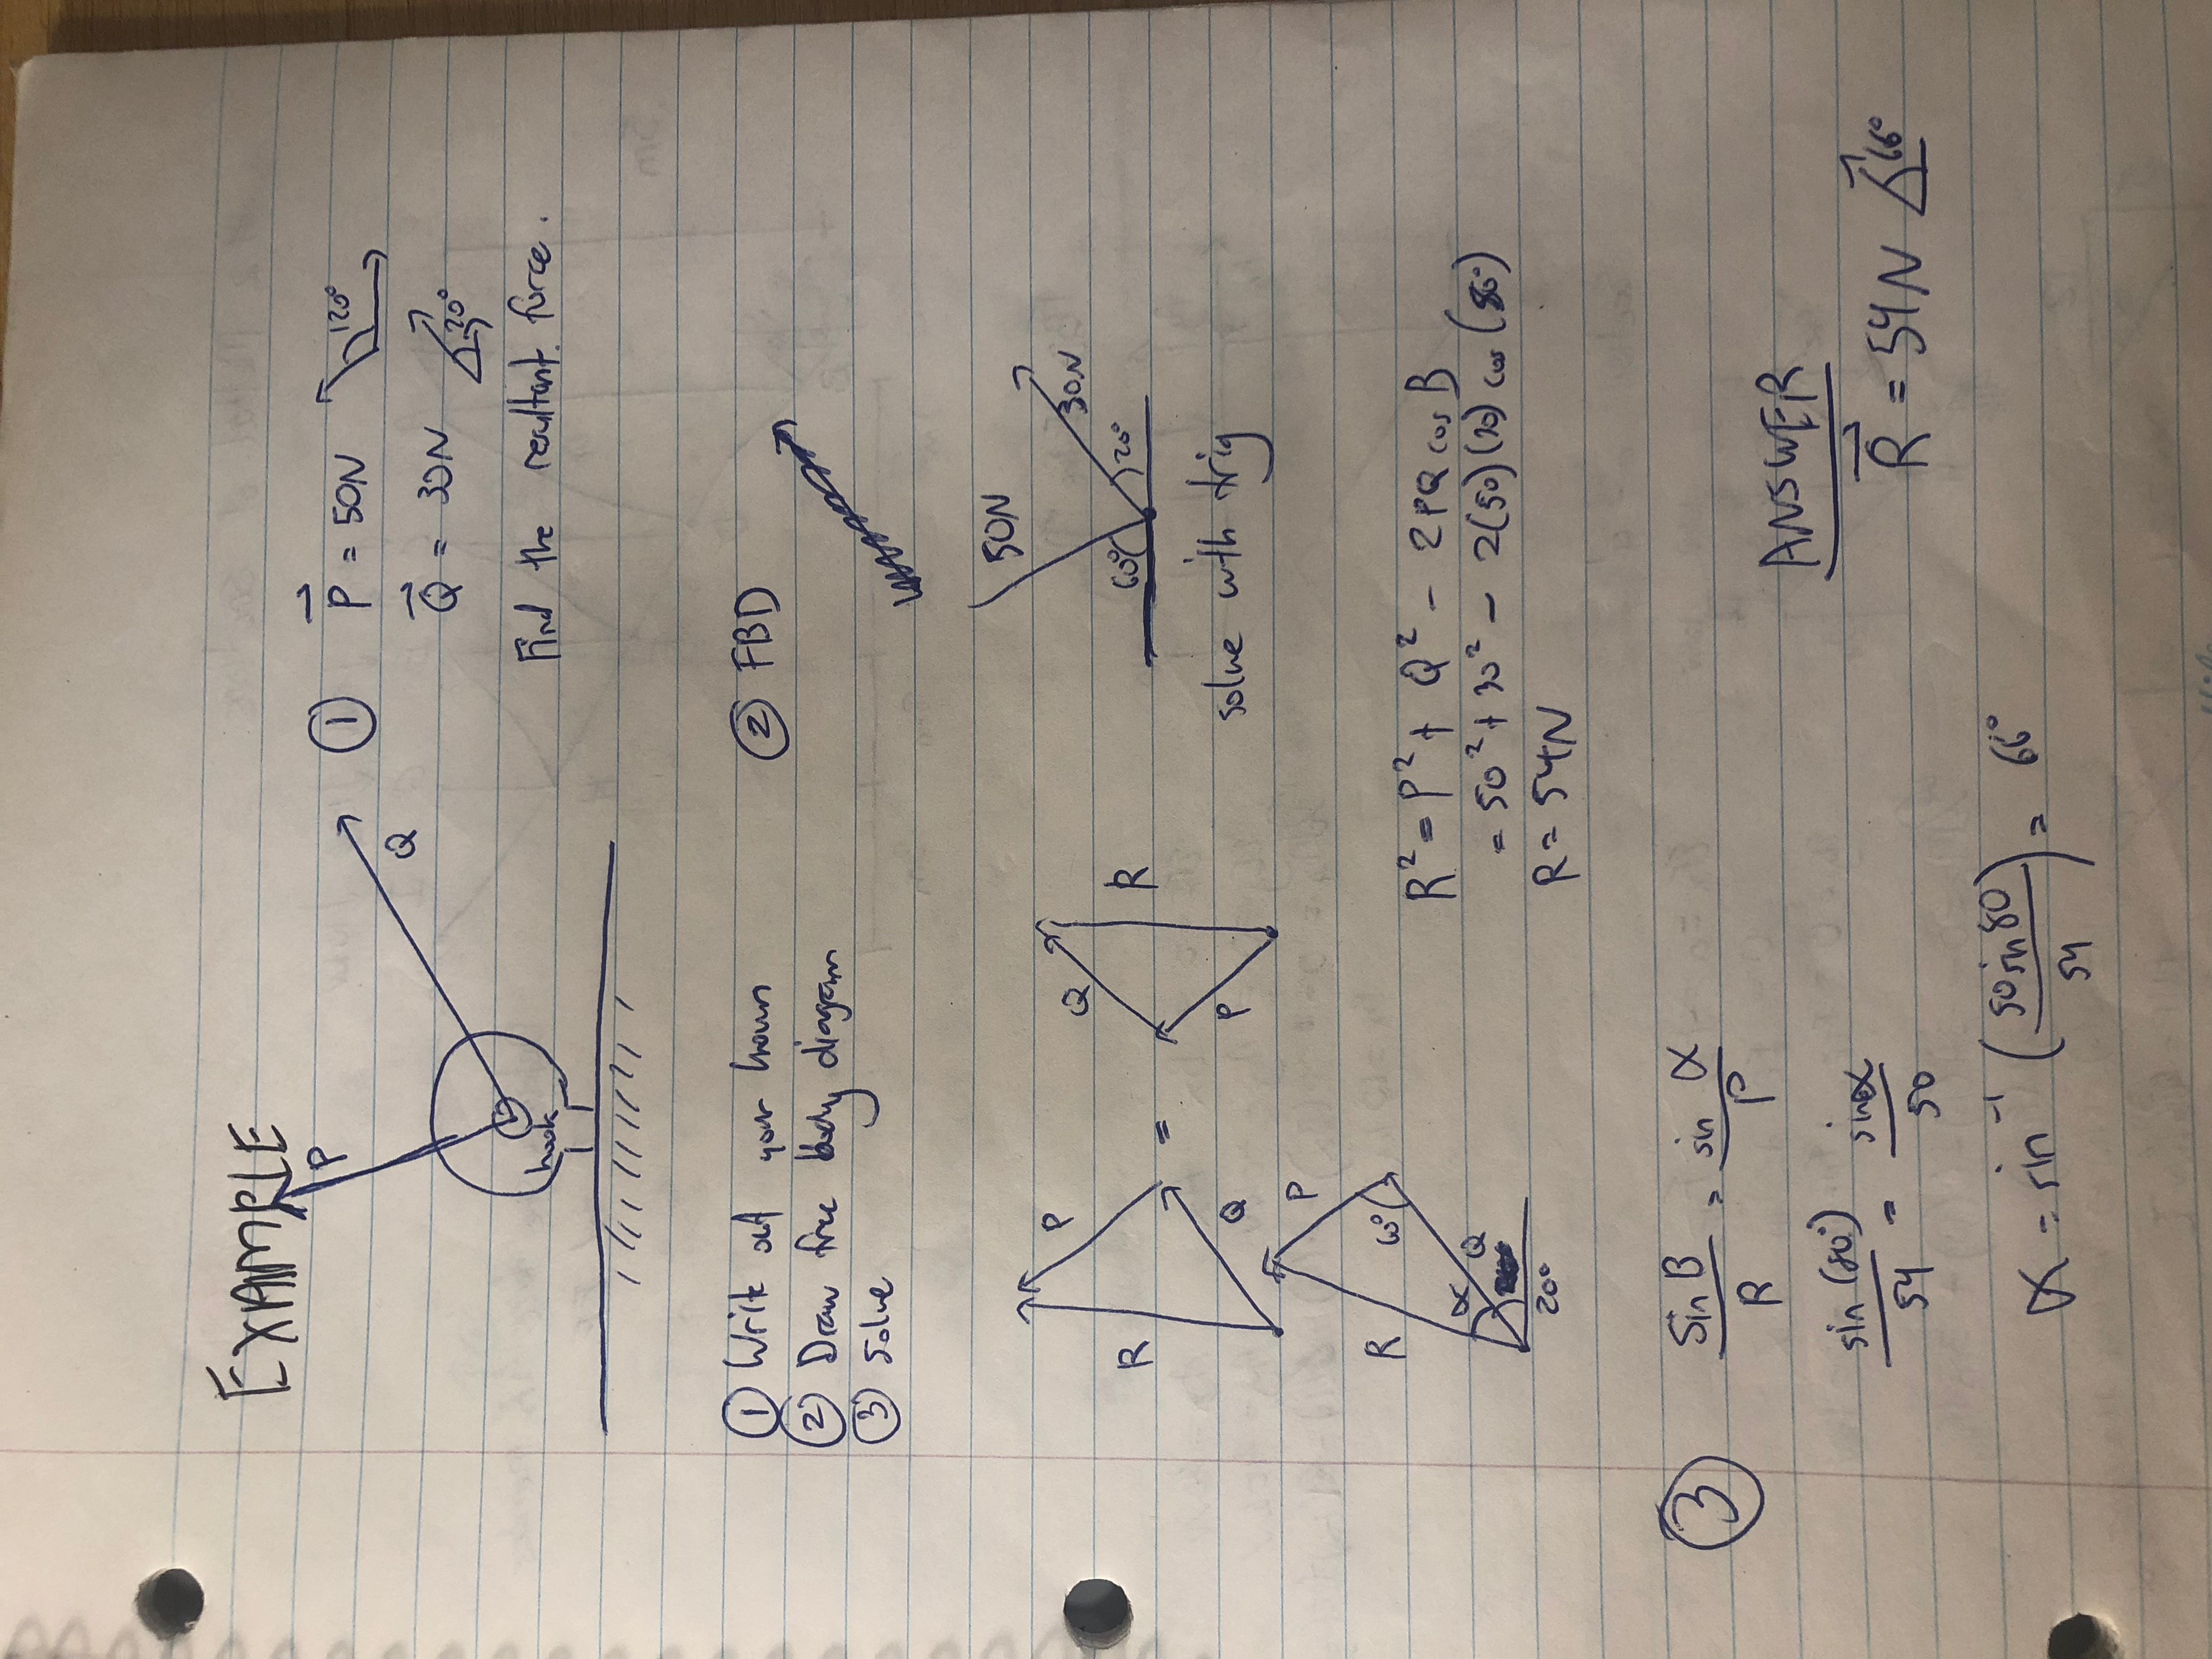 EXAMPLE
P
Q
hook
① P = 50N 120°
Q = 30N 20°
Find the resultant force.
① Write out your known
② Draw free body diagram
③ Solve
② FBD
50N
30N
60°
20°
solve with trig
R
P
Q
=
Q
P
R
R
P
60°
α
Q
20°
R² = P² + Q² - 2PQ cos B
= 50² + 30² - 2(50)(30) cos (80°)
R = 54N
③
Sin B / R = sin α / P
sin (80°) / 54 = sin α / 50
α = sin⁻¹ (50 sin 80 / 54) = 66°
ANSWER
R = 54N 66°